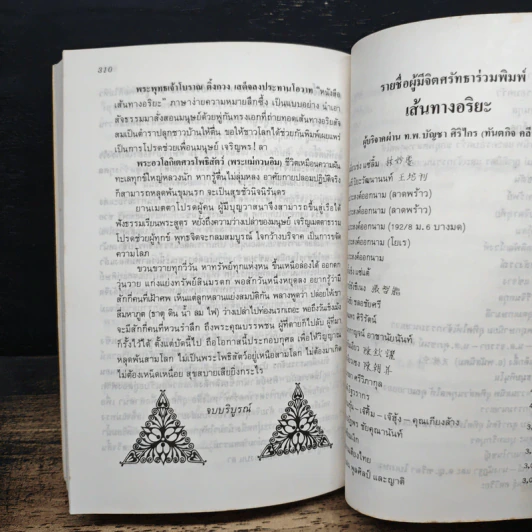 310
พระพุทธเจ้าโบราณ ตี้งกวง เสด็จลงประทานโอวาท "หนังสือ
เส้นทางอริยะ" ภาษาง่ายความหมายลึกซึ้ง เป็นแบบอย่าง นำเอา
สัจธรรมมาสั่งสอนมนุษย์ด้วยพู่กันทรงเอกที่ถ่ายทอดเส้นทางอริยสัจ
สมเป็นตำราปลุกชาวบ้านให้ตื่น ขอให้ชาวโลกได้ช่วยกันพิมพ์เผยแพร่
เป็นการโปรดช่วยเพื่อนมนุษย์ เจริญพร! ลา
พระอวโลกิเตศวรโพธิสัตว์ (พระแม่กวนอิม) ชีวิตเหมือนความฝัน
ทะเลทุกข์ใหญ่หลวงนัก หากรู้ตื่นไม่ลุ่มหลง อาศัยกายปลอมปฏิบัติจริง
ก็สามารถหลุดพ้นขุมนรก จะเป็นสุขชั่วนิจนิรันดร
ยานเมตตาโปรดผู้คน ผู้มีบุญวาสนาจึงสามารถขึ้นสู่เรือได้
ฟังธรรมเรียนพระสูตร หยั่งถึงความว่างเปล่าของมนุษย์ เจริญเมตตาธรรม
โปรดช่วยผู้ทุกข์ พุทธจิตจะกลมสมบูรณ์ ใจกว้างบริจาค เป็นการขจัด
ความโลภ
ขวนขวายทุกวี่วัน หาทรัพย์ทุกแห่งหน ขึ้นเหนือล่องใต้ ออกตก
วุ่นวาย แก่งแย่งทรัพย์สินมรดก พอสักวันหนึ่งหยุดลง อยากรู้ว่ามี
สักกี่คนที่เฝ้าศพ เห็นแต่ลูกหลานแย่งสมบัติกัน พลางพูดว่า ปล่อยให้เขา
สี่มหาภูต (ธาตุ ดิน น้ำ ลม ไฟ) ว่างเปล่าไปท่องนรกเถอะ พอถึงวันเช็งเม้ง
จะมีสักกี่คนที่หวนรำลึก ถึงพระคุณบรรพชน ผู้ที่ตายก็ไปลับ ผู้ที่มา
ก็รั้งไว้ได้ ตั้งแต่บัดนี้ไป ถือโอกาสนี้ประกอบกุศล เพื่อให้วิญญาณ
หลุดพ้นสามโลก ไม่เป็นพระโพธิสัตว์อยู่เหนือสามโลก ไม่ต้องมาเกิด
ไม่ต้องเหน็ดเหนื่อย สุขสบายเสียยิ่งกระไร
จบบริบูรณ์
รายชื่อผู้มีจิตศรัทธาร่วมพิมพ์
เส้นทางอริยะ
ผู้บริจาคผ่าน ท.พ. บัญชา ศิริไกร (ทันตกิจ คลี
วิวัฒนานนท์ 王培利
ประสงค์ออกนาม (ลาดพร้าว)
ประสงค์ออกนาม (ลาดพร้าว)
ประสงค์ออกนาม (192/8 ม.6 บางมด)
ประสงค์ออกนาม (โยเร)
ชลอชัยศรี
ศิริรัตน์
อาชานันนันท์
ศรีวิภากูล
คุณเกียงล้าง
ชัยคุณานันท์
เสียงไทย
และญาติ